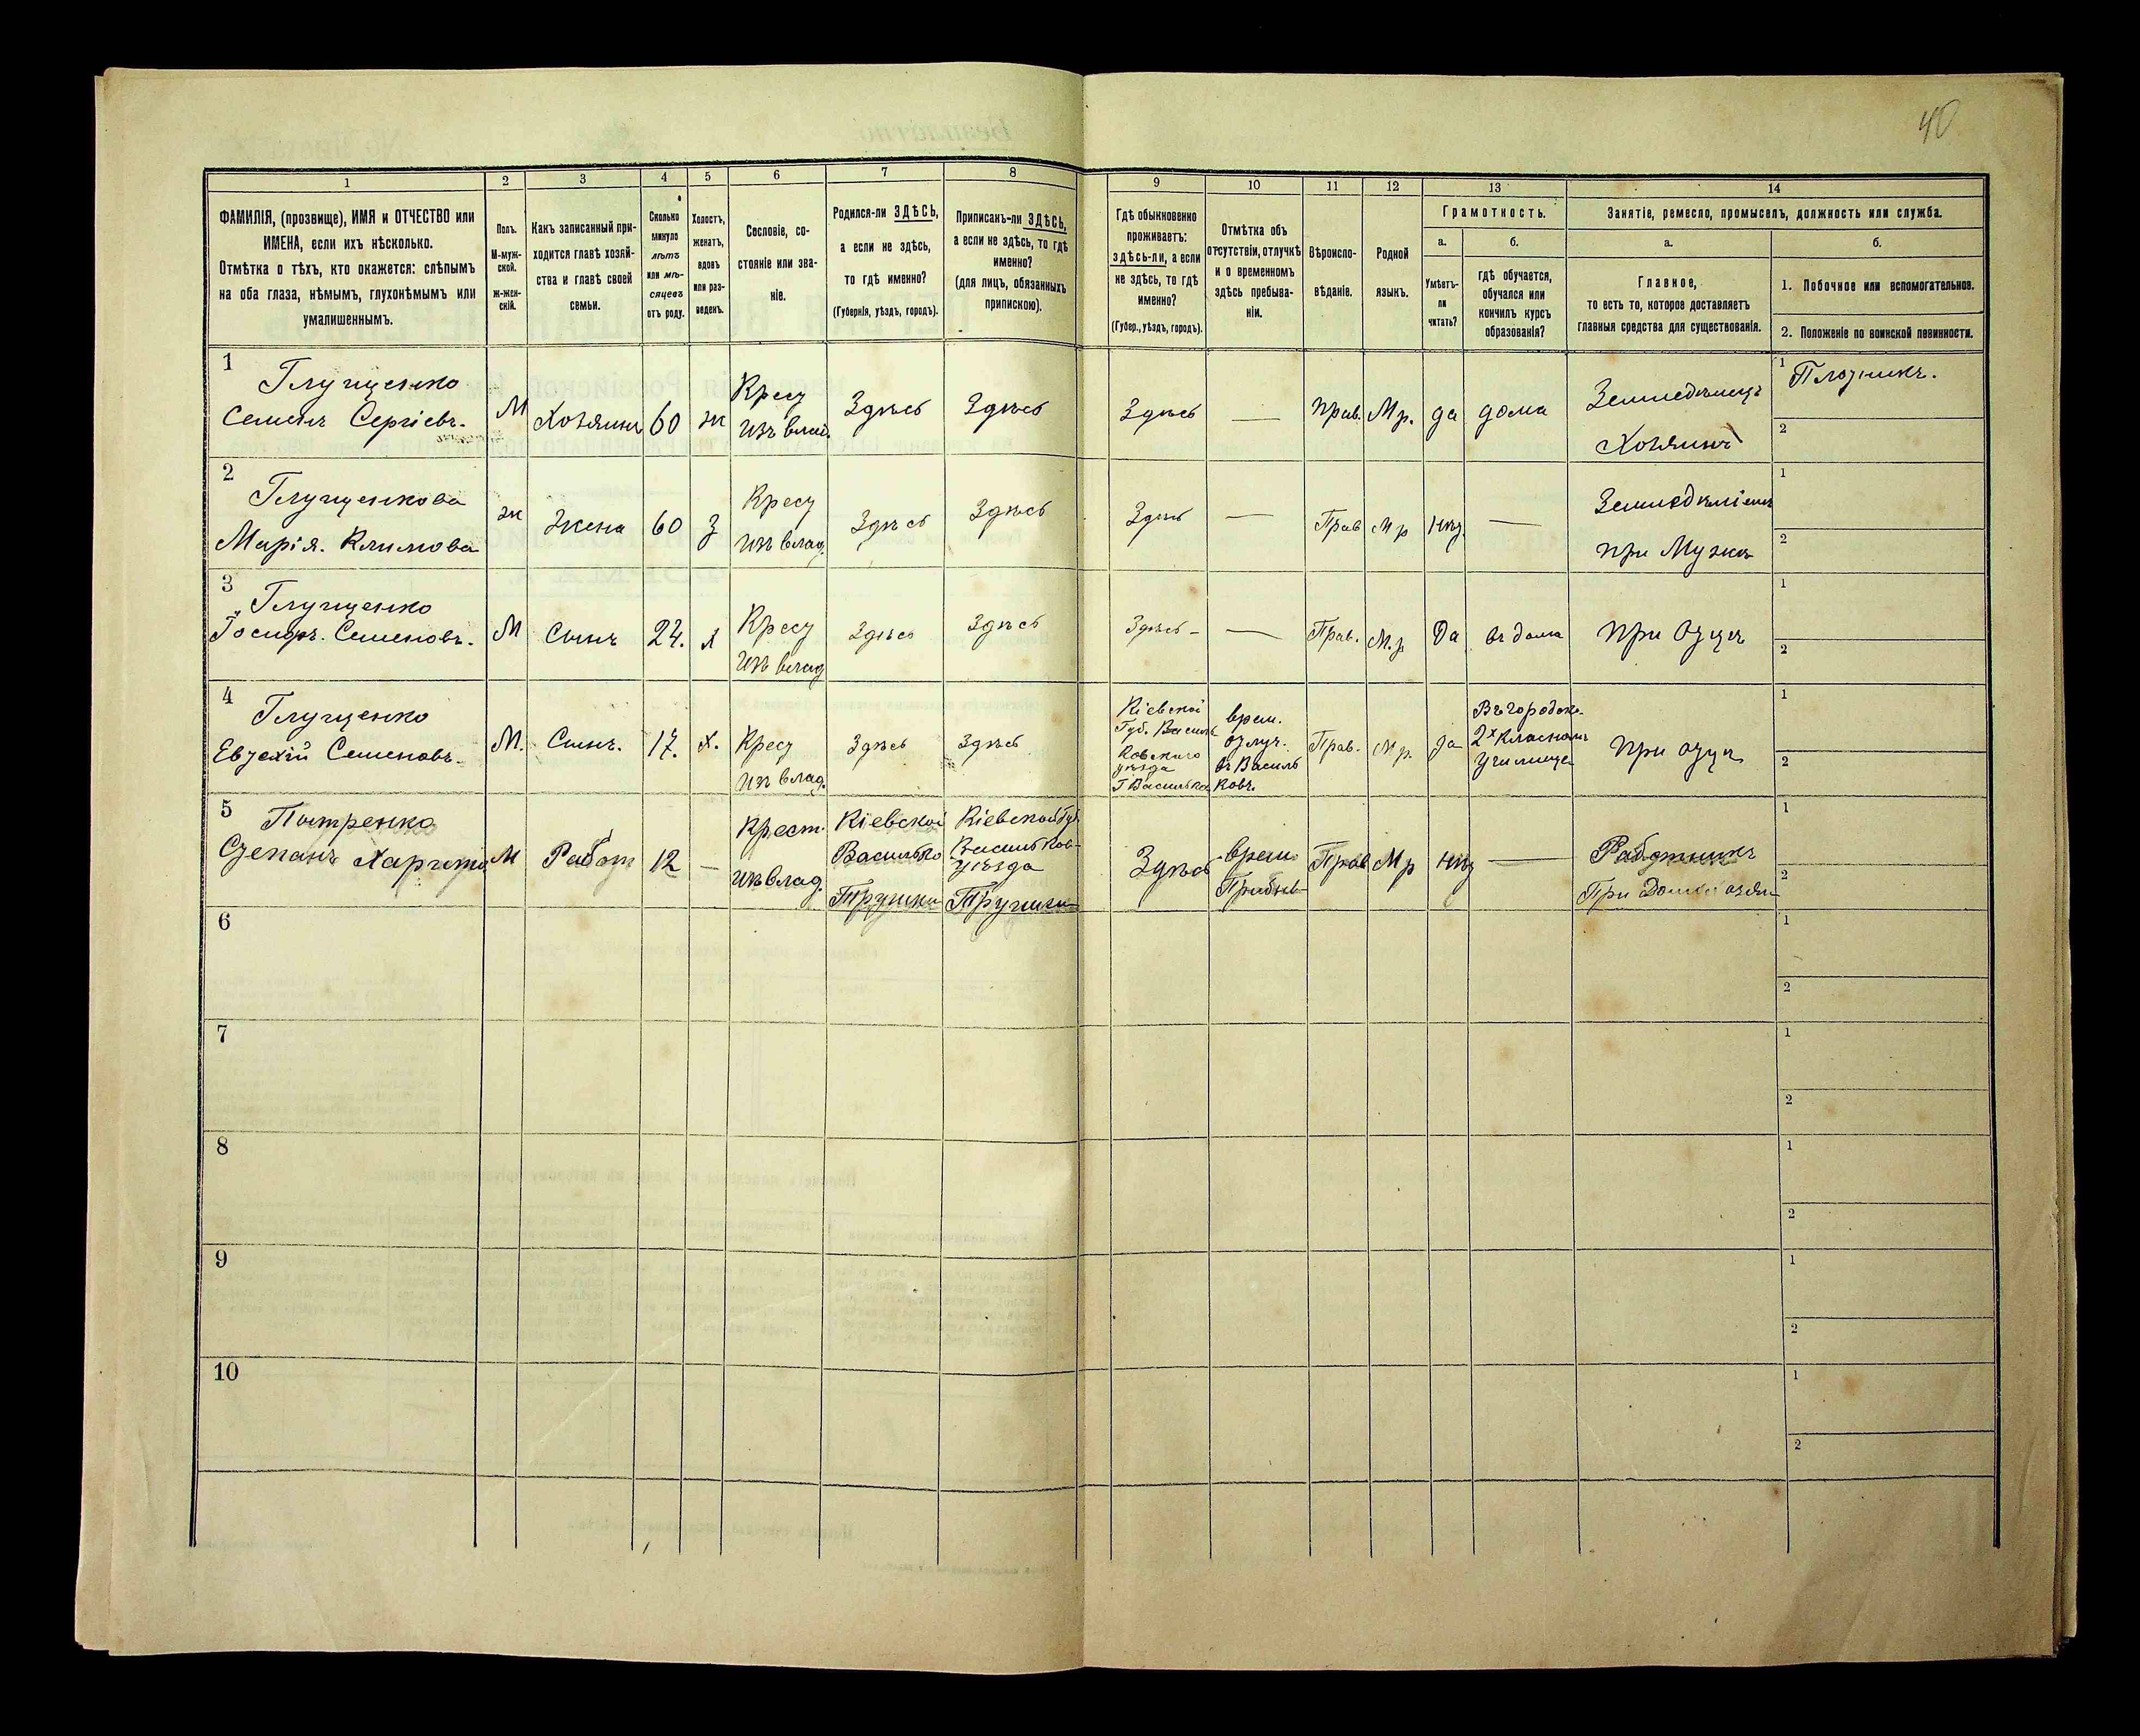 40
1 2 3 4 5 6 7 8 9 10 11 12 13 14
ФАМИЛІЯ, (прозвище), ИМЯ и ОТЧЕСТВО или
ИМЕНА, если ихъ нѣсколько.
Отмѣтка о тѣхъ, кто окажется: слѣпымъ
на оба глаза, нѣмымъ, глухонѣмымъ или
умалишеннымъ.
Полъ.
М-муж-
ской.
ж-жен-
скій.
Какъ записанный при-
ходится главѣ хозяй-
ства и главѣ своей
семьи.
Сколько
минуло
лѣтъ
или мѣ-
сяцевъ
отъ роду.
Холостъ,
женатъ,
вдовъ
или раз-
веденъ.
Сословіе, со-
стояніе или зва-
ніе.
Родился-ли ЗДѢСЬ,
а если не здѣсь,
то гдѣ именно?
(Губернія, уѣздъ, городъ).
Приписанъ-ли ЗДѢСЬ,
а если не здѣсь, то гдѣ
именно?
(для лицъ, обязанныхъ
припискою).
Гдѣ обыкновенно
проживаетъ:
здѣсь-ли, а если
не здѣсь, то гдѣ
именно?
(Губер., уѣздъ, городъ).
Отмѣтка объ
отсутствіи, отлучкѣ
и о временномъ
здѣсь пребыва-
ніи.
Вѣроиспо-
вѣданіе.
Родной
языкъ.
Грамотность.
а.
Умѣетъ-
ли
читать?
б.
гдѣ обучается,
обучался или
кончилъ курсъ
образованія?
Занятіе, ремесло, промыселъ, должность или служба.
а.
Главное,
то есть то, которое доставляетъ
главныя средства для существованія.
б.
1. Побочное или вспомогательное.
2. Положеніе по воинской повинности.
1
Глущенко
Семенъ Сергіевъ.
М
Хозяинъ
60
ж
Крест
изъ влад.
Здѣсь
Здѣсь
Здѣсь
—
Прав.
Мр.
да
дома
Земледѣлецъ
Хозяинъ
1
Плотникъ.
2
2
Глущенкова
Марія. Климова
ж
Жена
60
з
Крест
изъ влад.
Здѣсь
Здѣсь
Здѣсь
—
Прав
Мр
нѣт.
—
при Мужѣ
1
2
3
Глущенко
Семеновъ.
М
Сынъ
24.
х
Крест
изъ влад
Здѣсь
Здѣсь
Здѣсь –
—
Прав.
М.р
Да
въ дома
при Отцѣ
1
2
4
Глущенко
Евтихій Семеновъ.
М.
Сынъ.
17.
х.
Крест
изъ влад.
Здѣсь
Здѣсь
Кіевской
Губ. Василь
ковского
уѣзда
Г Василькο
врем.
отлуч.
въ Василь
ковъ.
Прав.
Мр.
да
Въ городско.
2х класномъ
училище
при отцѣ
1
2
5
Петренко
Степанъ
М
Работ
12
—
Крест.
изъ влад.
Кіевской
Василько
Трушки
Кіевской Губ
Васильков-
уѣзда
Трушки
Здѣсь
врем.
Прибыв
Прав
Мр
нѣт
—
Работникъ
При
1
2
6
1
2
7
1
2
8
1
2
9
1
2
10
1
2